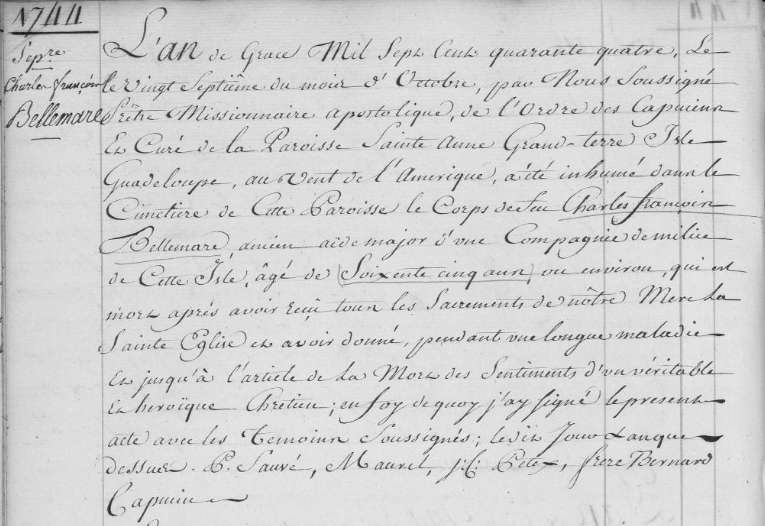 1744
Sep.re
Charles françois
Bellemare
L'an de Grace Mil Sept Cent quarante quatre, Le
le vingt Septiéme du mois d'Octobre, par Nous Soussigné
Prêtre Missionnaire apostolique, de l'Ordre des Capucins
Et Curé de la Paroisse Sainte Anne Grand-terre Isle
Guadeloupe, au Vent de l'Amerique, a été inhumé dans le
Cimetiere de Cette Paroisse le Corps de feu Charles françois
Bellemare ancien aide major d'une Compagnie de milice
de Cette Isle, âgé de Soixente cinq ans, ou environ, qui est
mort aprés avoir reçû tous les Sacrements de nôtre Mere la
Sainte Eglise et avoir donné, pendant une longue maladie
Et jusqu'à l'article de la Mort des Sentiments d'un véritable
Et heroïque Chretien; en foy de quoy j'ay signé le present
acte avec les Temoins Soussignés; ledit Jour & an que
dessus. P. Sauvé, Maurel, frere Bernard
Capucin